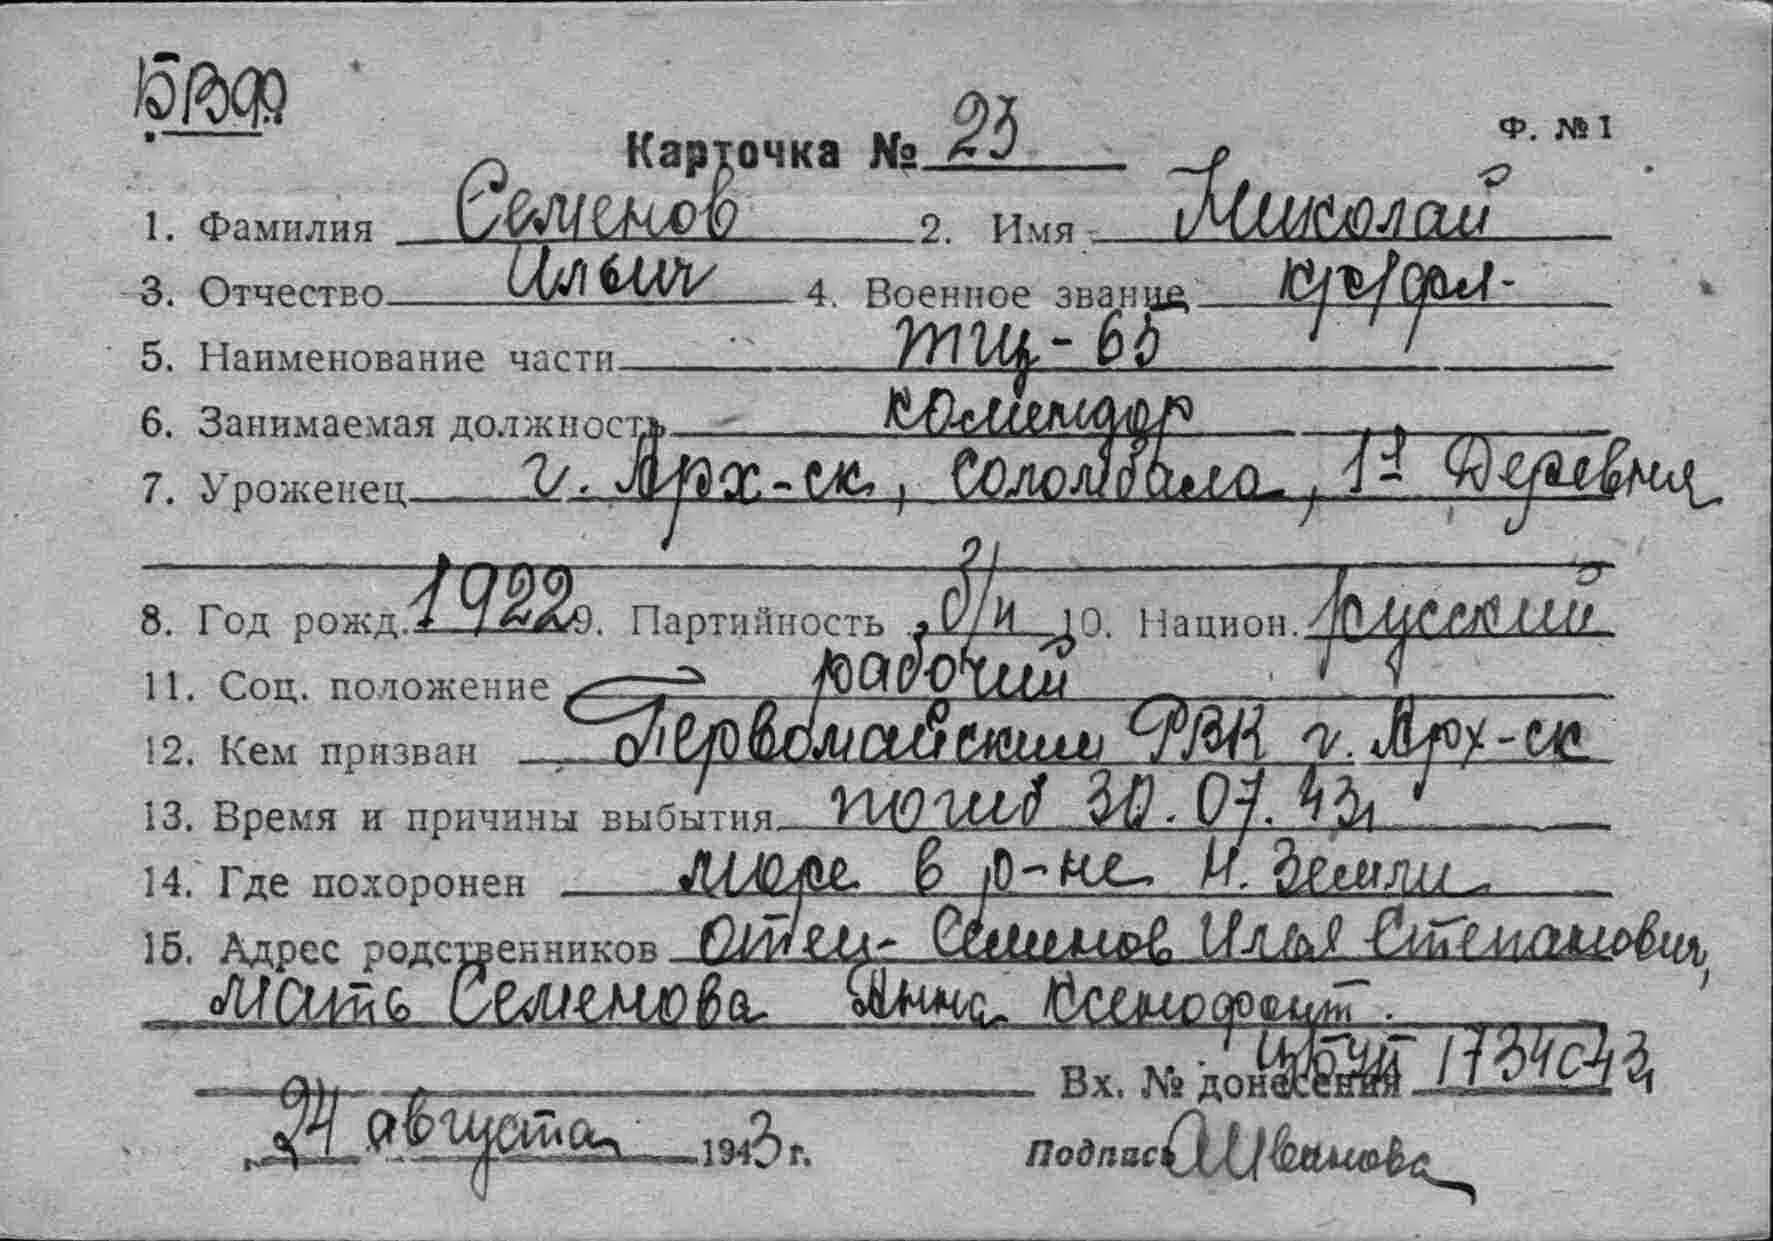 БВФ.
Ф. № 1
Карточка № 23
1. Фамилия Семенов 2. Имя Николай
3. Отчество Ильич 4. Военное звание кр/фл-
5. Наименование части ТЩ-65
6. Занимаемая должность комендор
7. Уроженец г. Арх-ск, Соломбала, 1я Деревня
8. Год рожд. 1922 9. Партийность б/п 10. Национ. русский
11. Соц. положение рабочий
12. Кем призван Первомайским РВК г. Арх-ск
13. Время и причины выбытия погиб 30.07.43г
14. Где похоронен море в р-не Н. Земли
15. Адрес родственников отец- Семенов Илья Степанович,
мать Семенова Анна Ксенофонт.
Вх. № донесения 1734с43г
24 августа 1943 г. Подпись АИванова